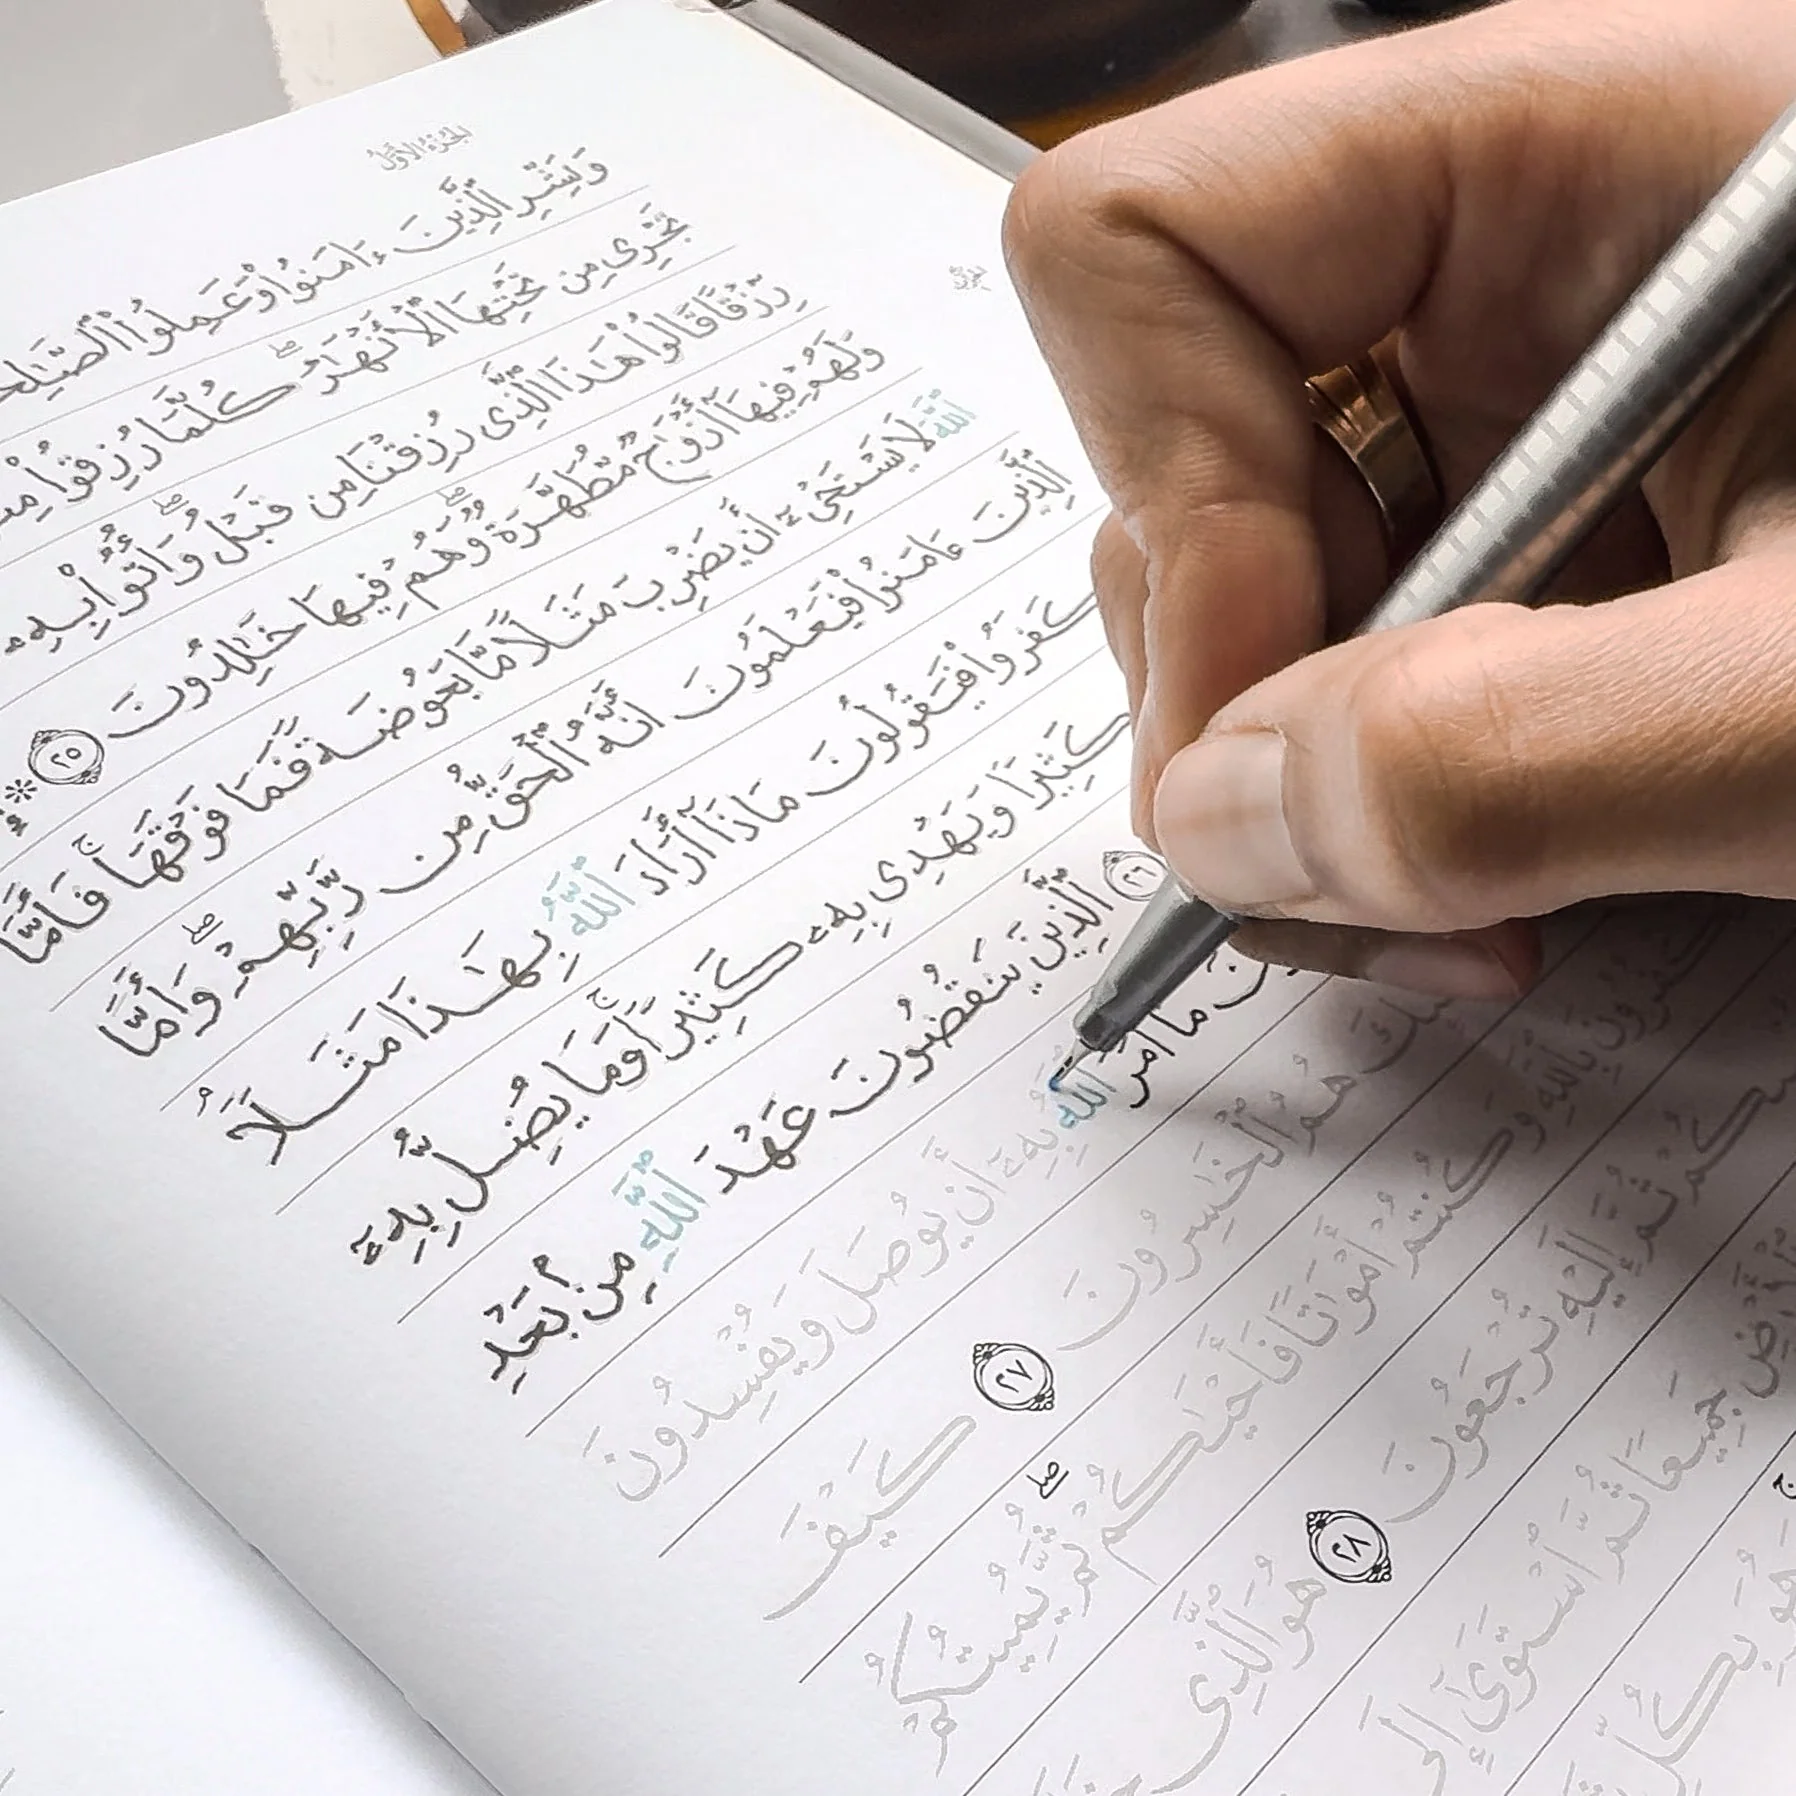 الجزء الأول
وَبَشِّرِ ٱلَّذِينَ ءَامَنُوا۟ وَعَمِلُوا۟ ٱلصَّـٰلِحَـ
تَجْرِى مِن تَحْتِهَا ٱلْأَنْهَـٰرُ ۖ كُلَّمَا رُزِقُوا۟ مِنْـ
رِّزْقًا قَالُوا۟ هَـٰذَا ٱلَّذِى رُزِقْنَا مِن قَبْلُ ۖ وَأُتُوا۟ بِهِۦ
وَلَهُمْ فِيهَآ أَزْوَٰجٌ مُّطَهَّرَةٌ ۖ وَهُمْ فِيهَا خَـٰلِدُونَ ٢٥ ۞
ٱللَّهَ لَا يَسْتَحْىِۦٓ أَن يَضْرِبَ مَثَلًا مَّا بَعُوضَةً فَمَا فَوْقَهَا ۚ فَأَمَّا
ٱلَّذِينَ ءَامَنُوا۟ فَيَعْلَمُونَ أَنَّهُ ٱلْحَقُّ مِن رَّبِّهِمْ ۖ وَأَمَّا
كَفَرُوا۟ فَيَقُولُونَ مَاذَآ أَرَادَ ٱللَّهُ بِهَـٰذَا مَثَلًا ۘ
كَثِيرًا وَيَهْدِى بِهِۦ كَثِيرًا ۚ وَمَا يُضِلُّ بِهِۦٓ
٢٦ ٱلَّذِينَ يَنقُضُونَ عَهْدَ ٱللَّهِ مِنۢ بَعْدِ
ونَ مَآ أَمَرَ ٱللَّهُ بِهِۦٓ أَن يُوصَلَ وَيُفْسِدُونَ
ـئِكَ هُمُ ٱلْخَـٰسِرُونَ ٢٧ كَيْفَ
تَكْفُرُونَ بِٱللَّهِ وَكُنتُمْ أَمْوَٰتًا فَأَحْيَـٰكُمْ ۖ ثُمَّ يُمِيتُكُمْ
ـيكُمْ ثُمَّ إِلَيْهِ تُرْجَعُونَ ٢٨ هُوَ ٱلَّذِى
ٱلْأَرْضِ جَمِيعًا ثُمَّ ٱسْتَوَىٰٓ إِلَى
وَهُوَ بِكُلِّ